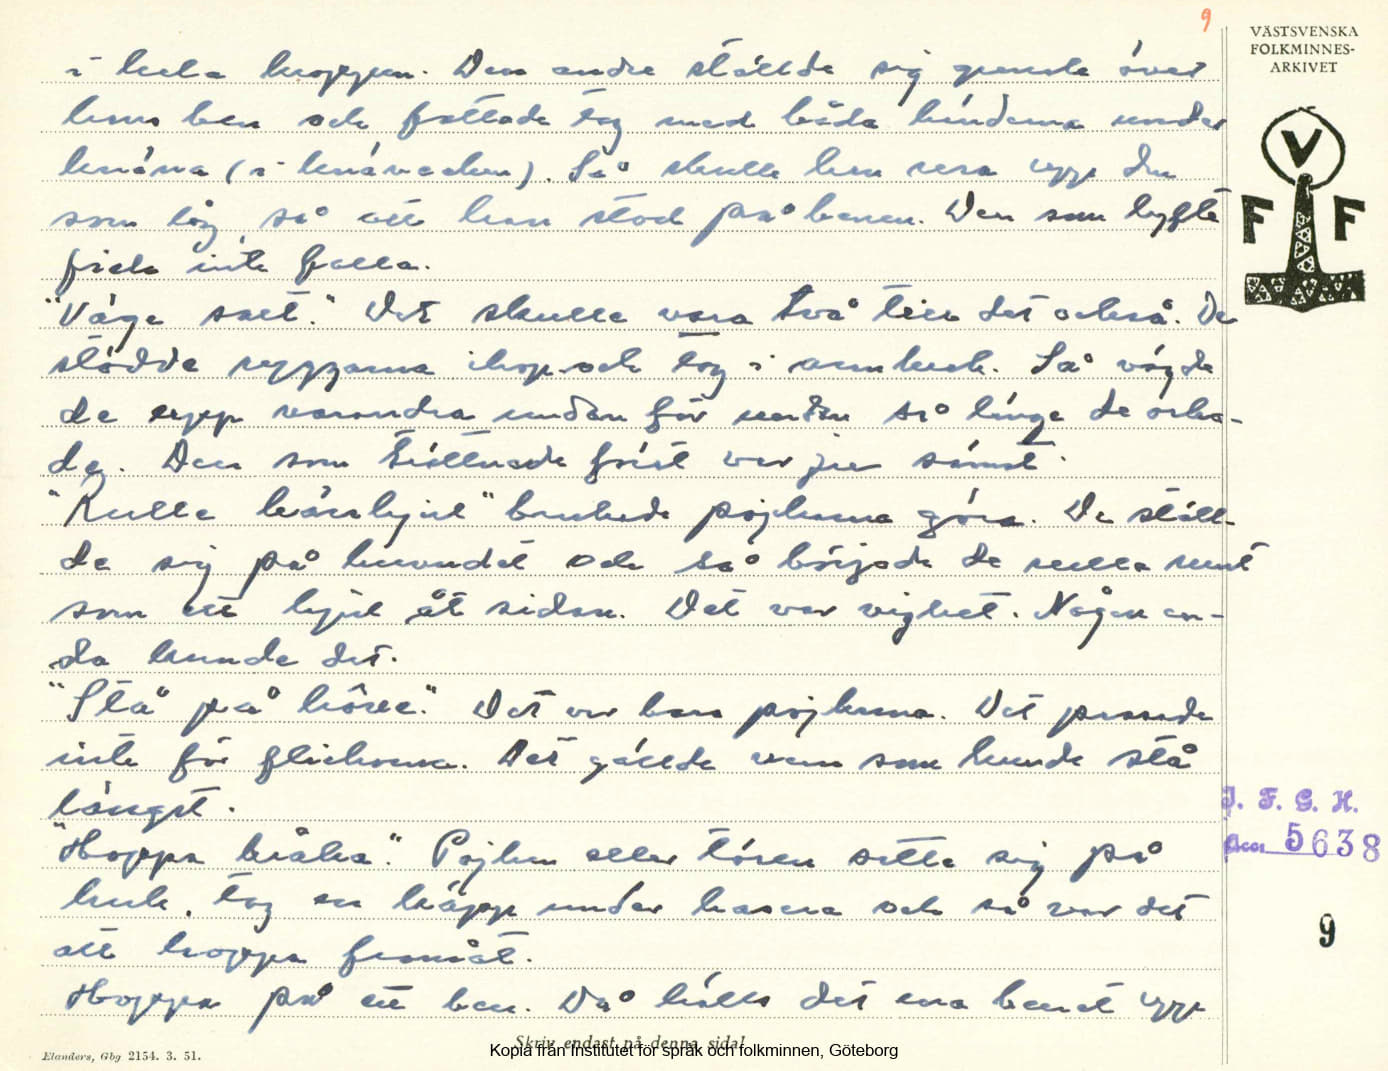 9
VÄSTSVENSKA
FOLKMINNES-
ARKIVET
V
F F
i hela kroppen. Den andre ställde sig grensle över
hans ben och fattade tag med båda händerna under
knäna (i knävecken). Så skulle han resa upp den
som låg, så att han stod på benen. Den som lyfte
fick inte falla.
"Väga salt." Det skulle vara två till det också. De
stödde ryggarna ihop och tog i armkrok. Så vägde
de upp varandra undan för undan så länge de orka-
de. Den som tröttnade först var ju sämst.
"Rulla kärrhjul" brukade pojkarna göra. De ställ-
de sig på huvudet och så började de rulla runt
som ett hjul åt sidan. Det var vighet. Någon en-
da kunde det.
"Stå på höve." Det var bara pojkarna. Det passade
inte för flickorna. Det gällde vem som kunde stå
längst.
"Hoppa kråka". Pojken eller tösen satte sig på
huk, tog en käpp under hasera och så var det
att hoppa framåt.
Hoppa på ett ben. Då hölls det ena benet upp
I. F. G. H.
Acc. 5638
9
Skriv endast på denna sida!
Kopia från Institutet för språk och folkminnen, Göteborg
Elanders, Gbg 2154. 3. 51.